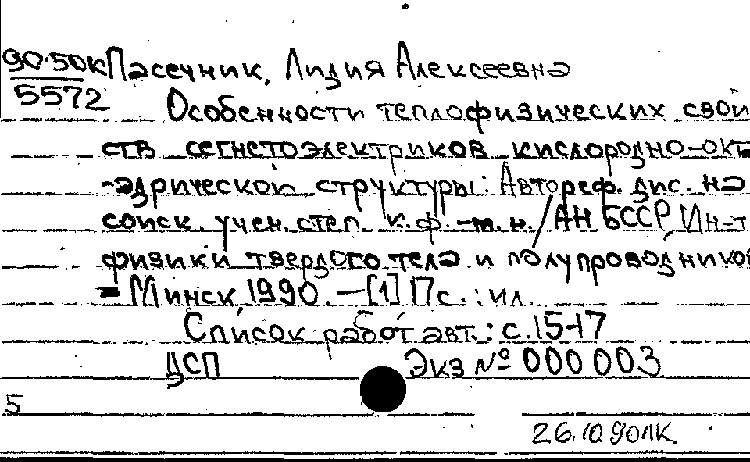 90-50к Пасечник, Лидия Алексеевна
5572 Особенности теплофизических свой
ств сегнетоэлектриков кислородно-окт
-аэдрической структуры: Автореф. дис. на
соиск. учен. степ. к.ф.-м.н./АН БССР Ин-т
физики твердого тела и полупроводников
- Минск 1990. - [1] 17с.: ил.
Список работ авт.: с. 15-17
ДСП Экз № 000 003
5
26.10.90